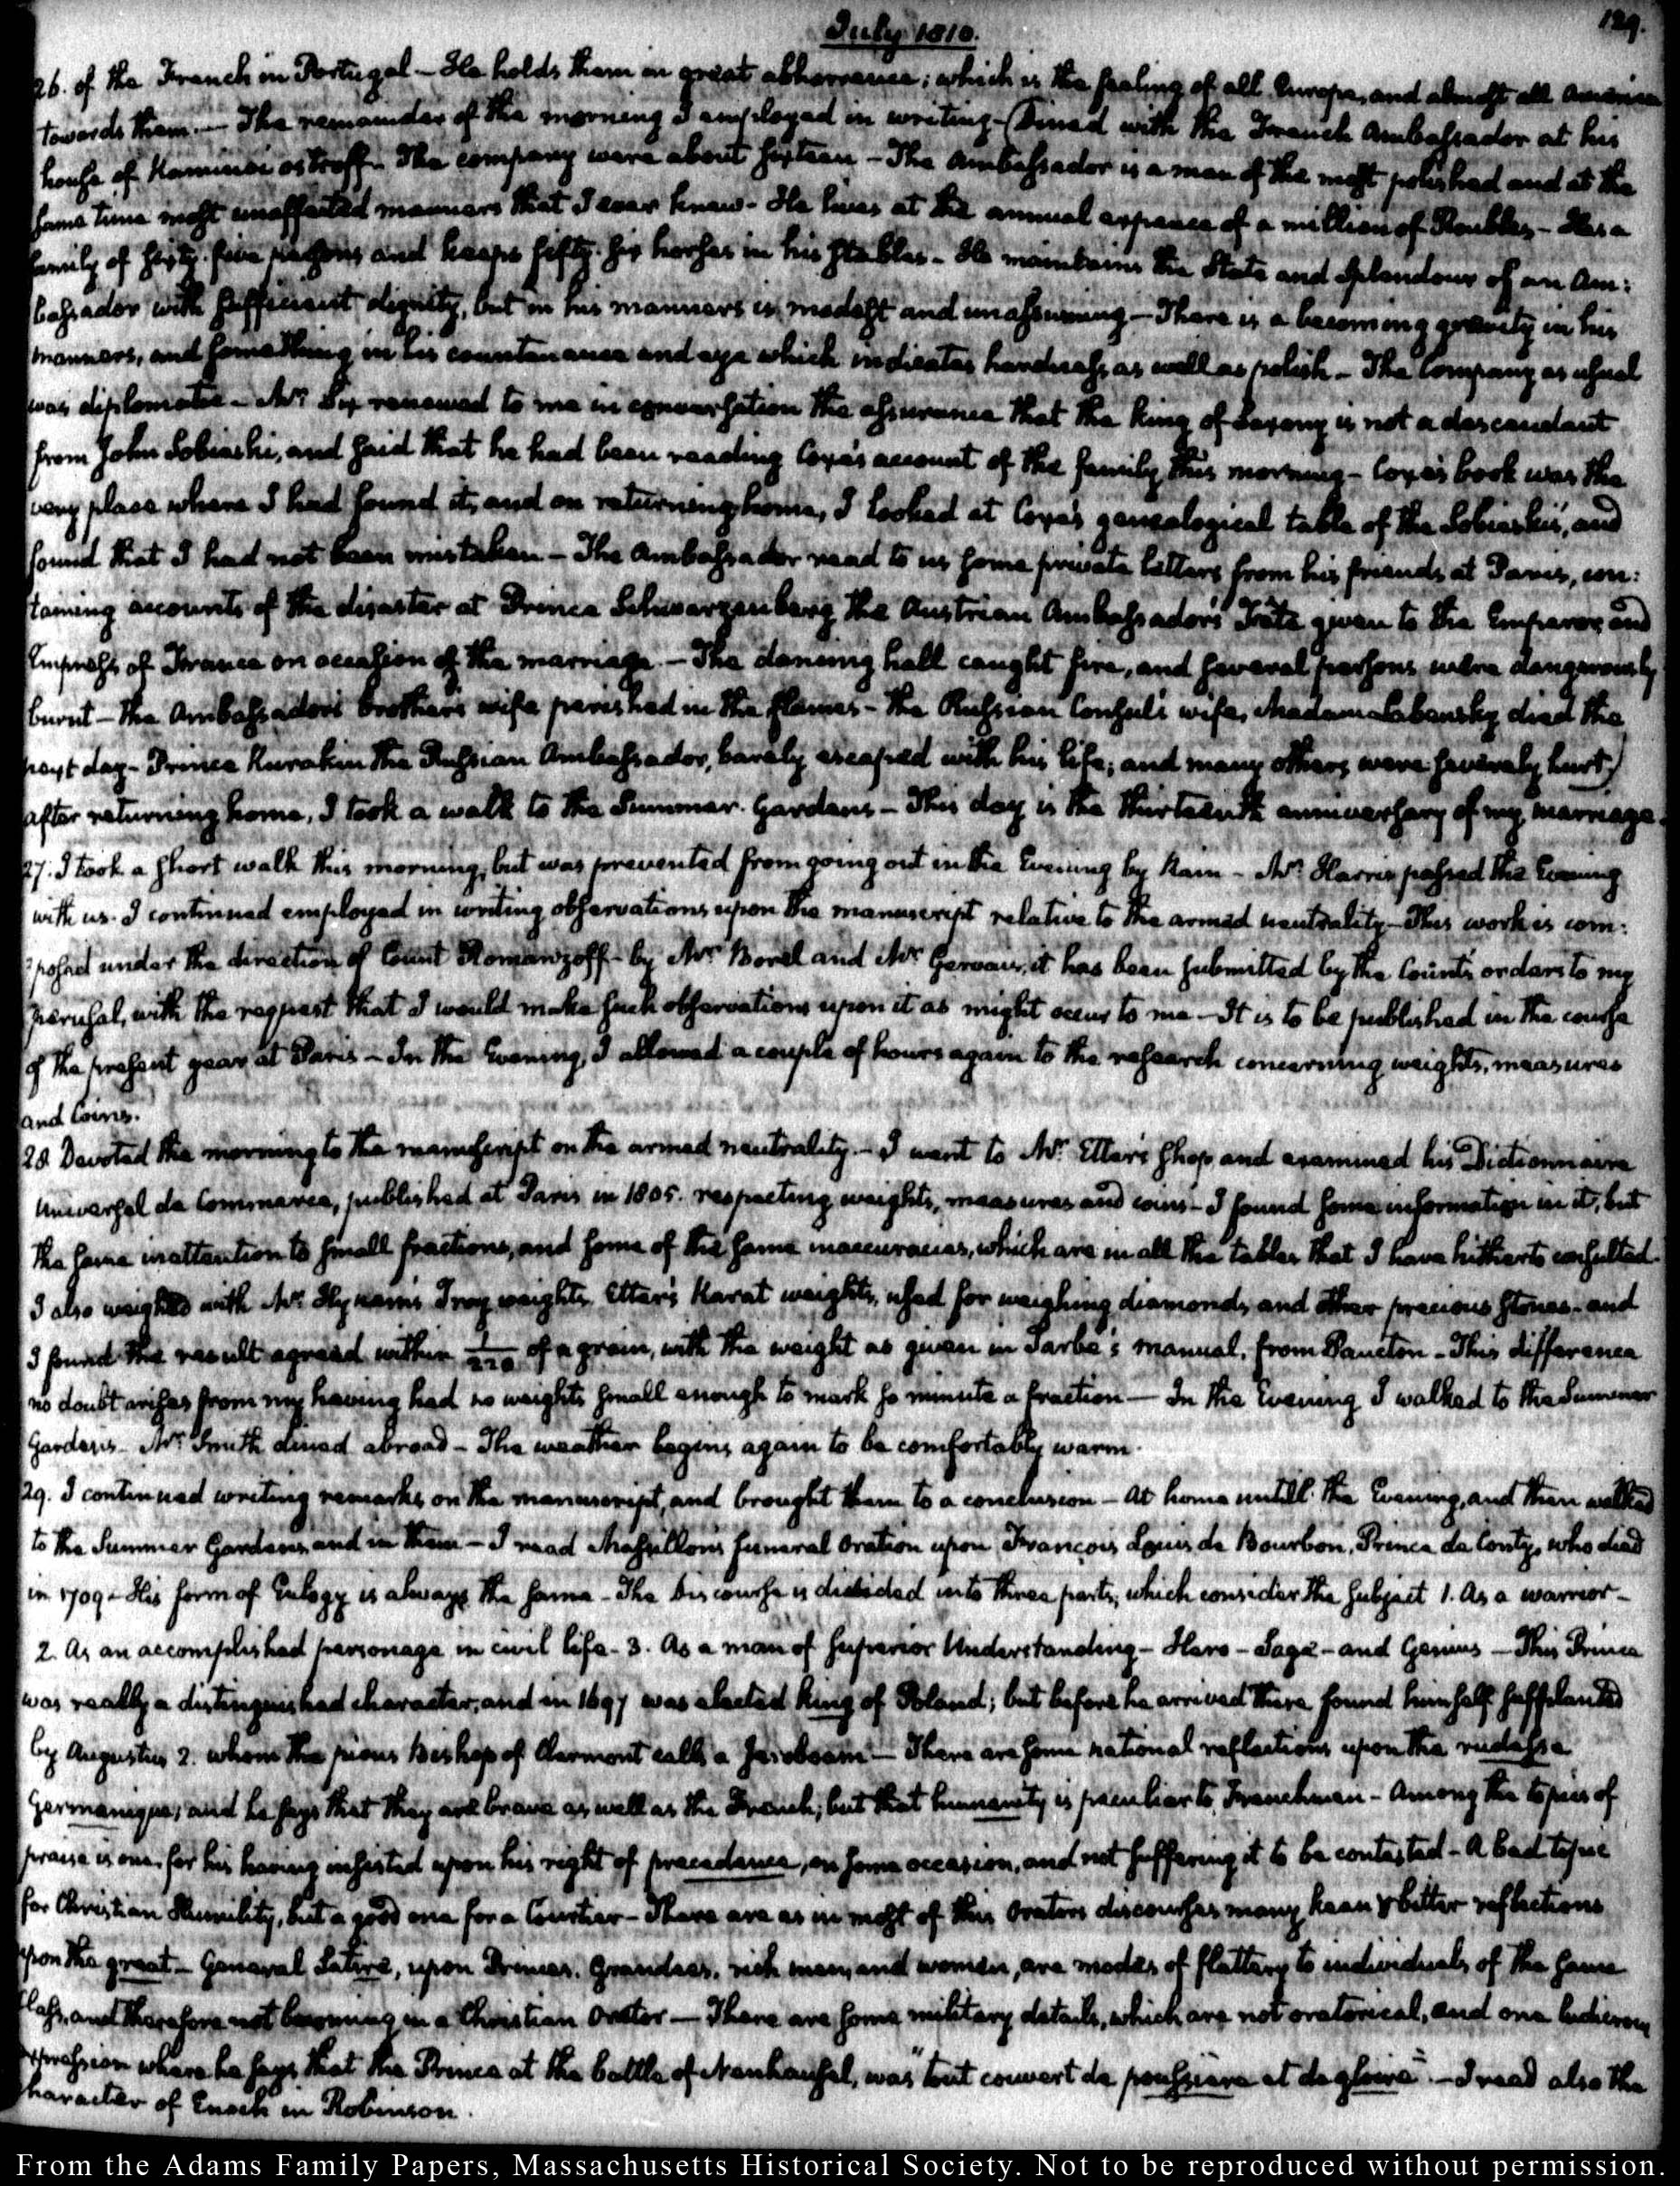 July 1810.
129.
26. of the French in Portugal — He holds them in great abhorrence; which is the feeling of all Europe, and almost all America
towards them. — The remainder of the morning I employed in writing — (Dined with the French Ambassador at his
house of Kaminoi ostroff — The company were about sixteen — The Ambassador is a man of the most polished and at the
same time most unaffected manners that I ever knew — He lives at the annual expence of a million of Roubles — Has a
family of sixty-five persons and keeps fifty-six horses in his stables — He maintains the State and Splendour of an Am:
bassador with sufficient dignity, but in his manners is modest and unassuming — There is a becoming gravity in his
manners, and something in his countenance and eye which indicates hardness as well as polish — The Company as usual
was diplomatic — Mr. Six renewed to me in conversation the assurance that the king of Saxony is not a descendant
from John Sobieski, and said that he had been reading Coxe's account of the family this morning — Coxe's book was the
very place where I had found it, and on returning home, I looked at Coxe's genealogical table of the Sobieski's, and
found that I had not been mistaken — The Ambassador read to us some private letters from his friends at Paris, con:
taining accounts of the disaster at Prince Schwarzenberg the Austrian Ambassador's Fête given to the Emperor and
Empress of France on occasion of the marriage. — The dancing hall caught fire, and several persons were dangerously
burnt — The Ambassador's brother's wife perished in the flames — The Russian Consul's wife, Madam Labensky died the
next day — Prince Kurakin the Russian Ambassador, barely escaped with his life; and many others were severely hurt)
after returning home, I took a walk to the Summer Gardens — This day is the thirteenth anniversary of my marriage.
27. I took a short walk this morning, but was prevented from going out in the Evening by Rain — Mr. Harris passed the Evening
with us. I continued employed in writing observations upon the manuscript relative to the armed neutrality — This work is com:
posed under the direction of Count Romanzoff — by Mr. Borel and Mr. Gervais, it has been submitted by the Count's orders to my
perusal, with the request that I would make such observations upon it as might occur to me — It is to be published in the course
of the present year at Paris — In the Evening, I allowed a couple of hours again to the research concerning weights, measures
and Coins.
28. Devoted the morning to the manuscript on the armed neutrality. — I went to Mr. Etter's shop and examined his Dictionnaire
Universel de Commerce, published at Paris in 1805. respecting weights, measures and coins — I found some information in it, but
the same inattention to small fractions, and some of the same inaccuracies, which are in all the tables that I have hitherto consulted.
I also weighed with Mr. Hynam's Troy weights Etter's Karat weights, used for weighing diamonds and other precious stones — and
I found the result agreed within 1/220 of a grain, with the weight as given in Garbe's manual, from Paucton — This difference
no doubt arises from my having had no weights small enough to mark so minute a fraction — In the Evening I walked to the Summer
Gardens — Mr. Smith dined abroad — The weather begins again to be comfortably warm.
29. I continued writing remarks on the manuscript, and brought them to a conclusion — At home untill the Evening, and then walked
to the Summer Gardens and in them — I read Massillon's funeral Oration upon François Louis de Bourbon, Prince de Conty, who died
in 1709 — His form of Eulogy is always the same — The Discourse is divided into three parts, which consider the subject 1. As a warrior —
2. As an accomplished personage in civil life — 3. As a man of superior Understanding — Hero — Sage — and Genius — This Prince
was really a distinguished character, and in 1697 was elected King of Poland; but before he arrived there found himself supplanted
by Augustus 2. whom the pious Bishop of Clermont calls a Jeroboam — There are some national reflections upon the rudesse
Germanique; and he says that they are brave as well as the French; but that humanity is peculiar to Frenchmen — Among the topics of
praise is one, for his having insisted upon his right of precedence, on some occasion, and not suffering it to be contested — A bad topic
for Christian Humility, but a good one for a Courtier — There are as in most of this Orator's discourses many keen & bitter reflections
upon the great — General Satire, upon Princes, Grandees, rich men, and women, are modes of flattery to individuals of the same
class, and therefore not becoming in a Christian Orator — There are some military details, which are not oratorical, and one ludicrous
expression where he says that the Prince at the battle of Neuhausel, was "tout couvert de poussiere et de gloire". — I read also the
character of Enoch in Robinson.
From the Adams Family Papers, Massachusetts Historical Society. Not to be reproduced without permission.